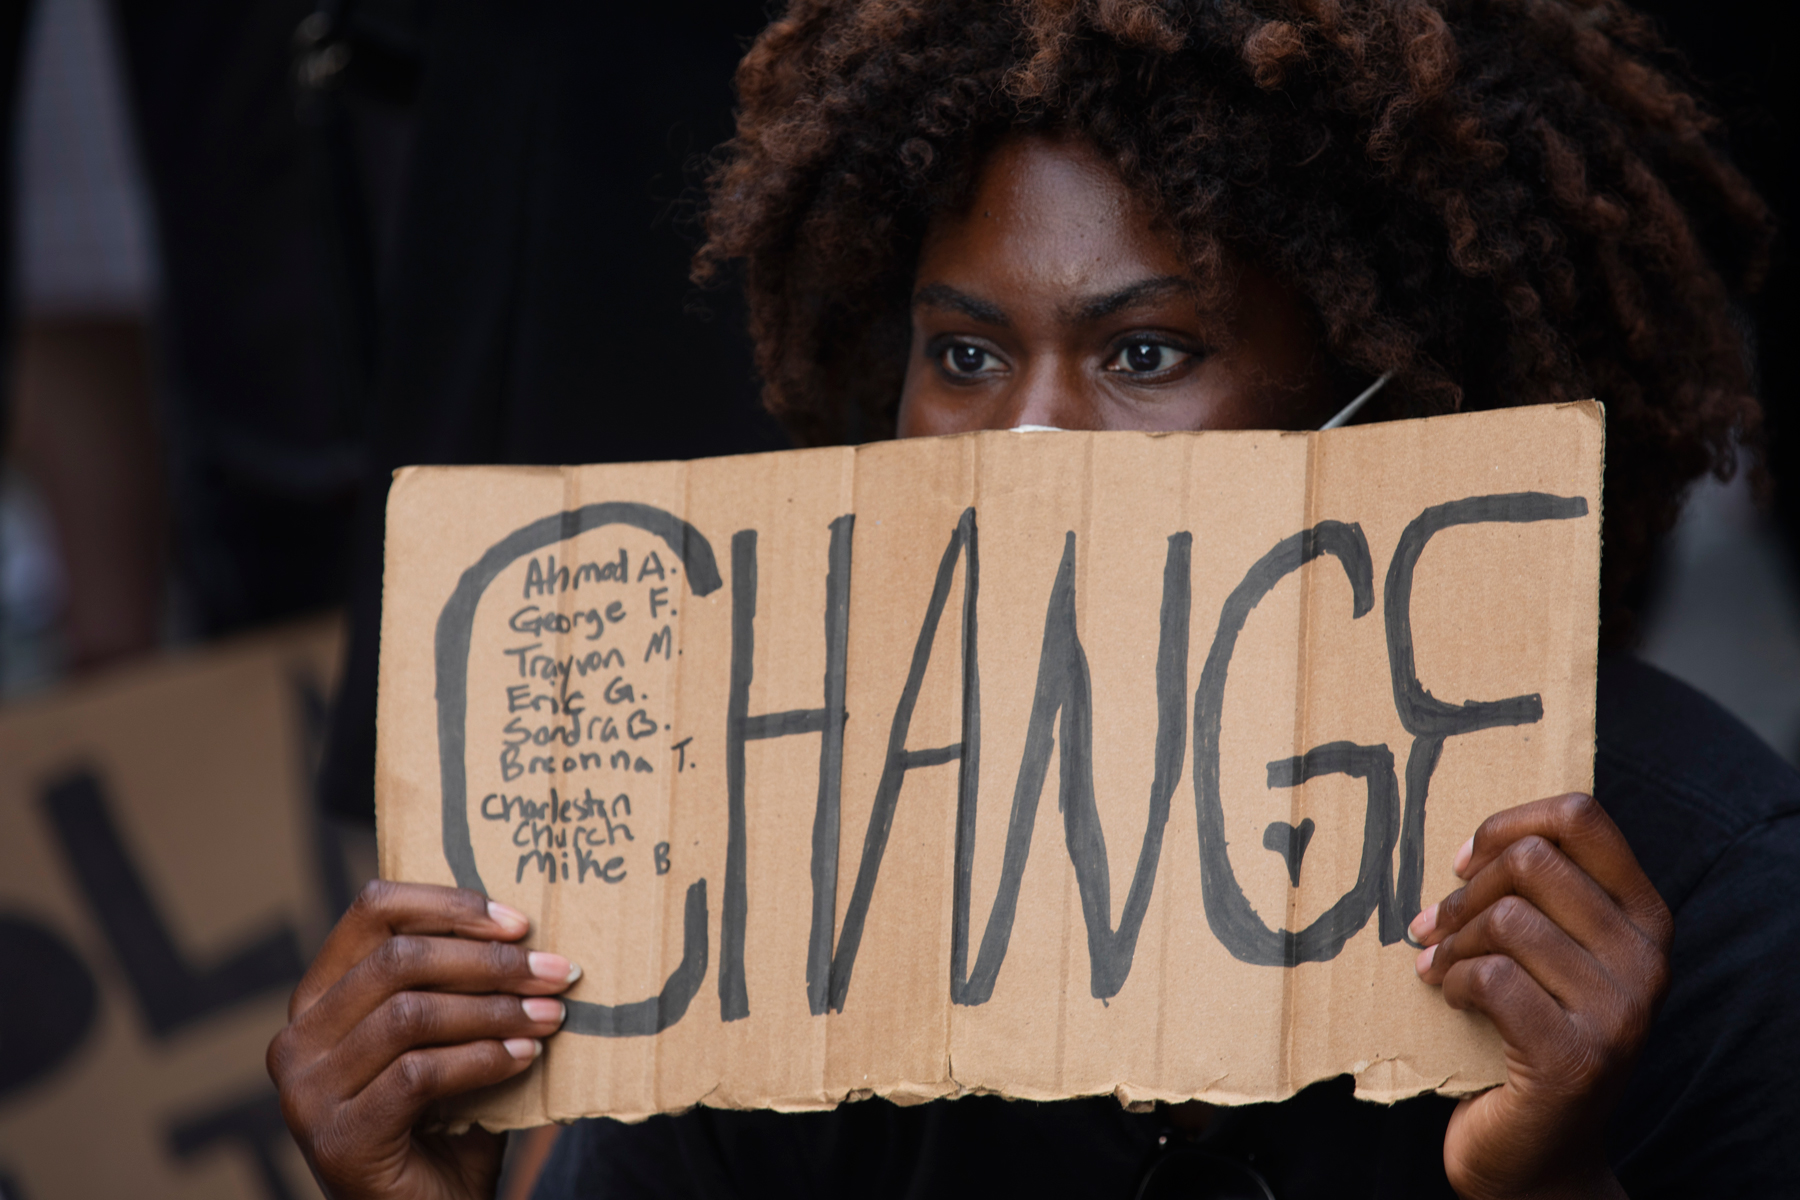 CHANGE
Ahmad A.
George F.
Trayvon M.
Eric G.
Sandra B.
Breonna T.
Charleston
Church
Mike B